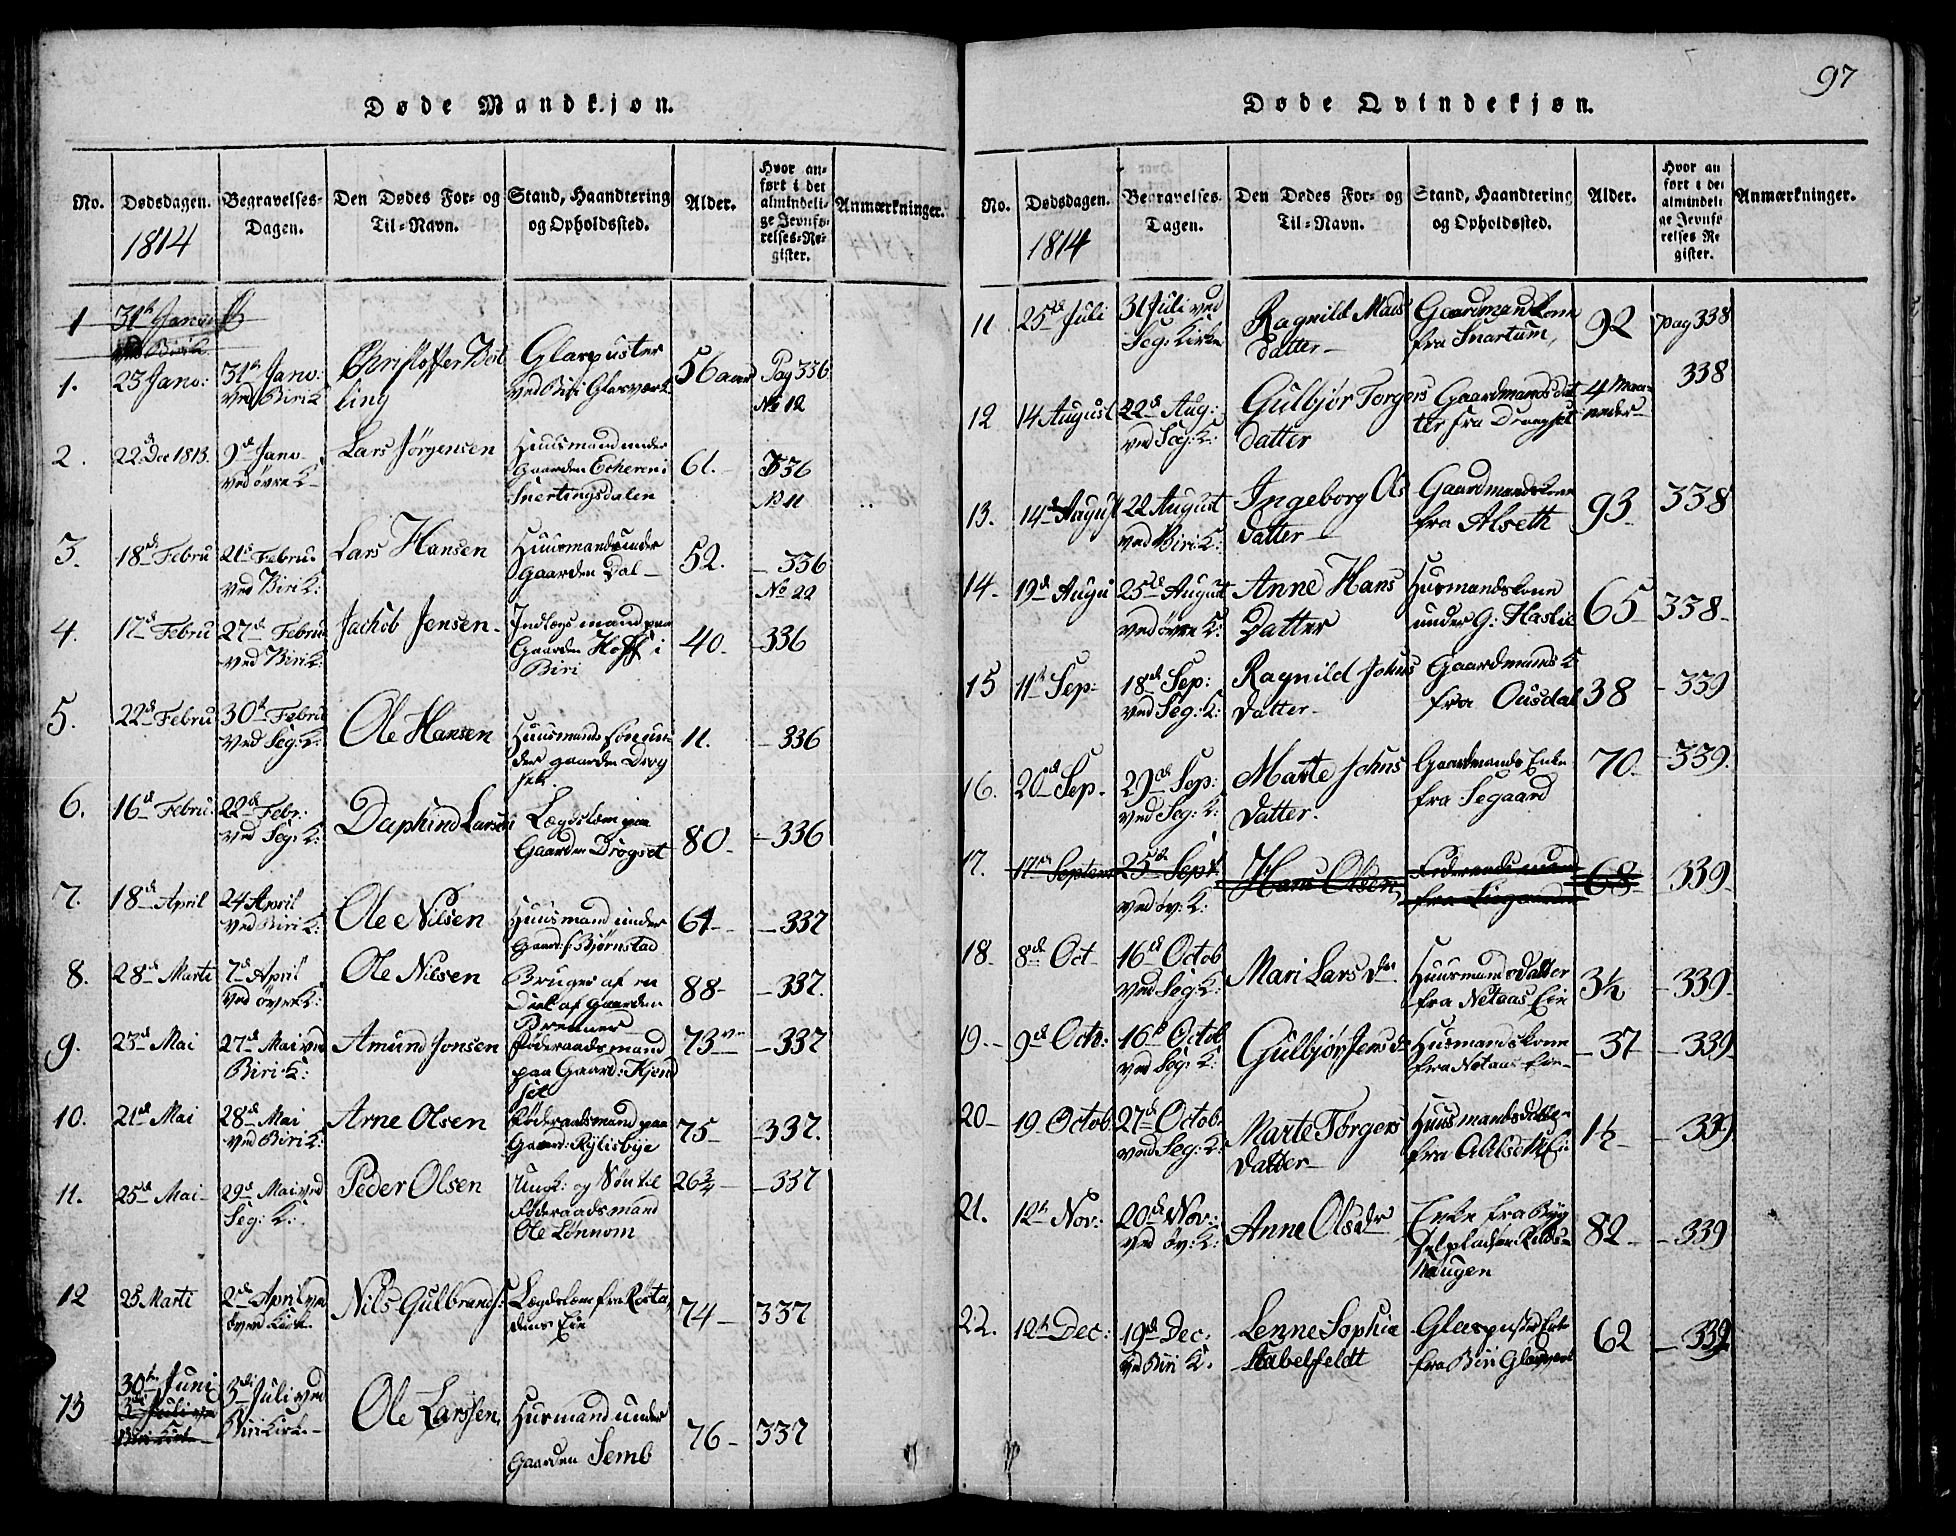 97
Døde Mandkjøn.
No.
Dødsdagen.
1814
Begravelses-
Dagen.
Den Dødes For- og
Til-Navn.
Stand, Haandtering
og Opholdssted.
Alder.
Hvor an-
ført i det
almindeli-
ge Jevnfø-
relses-Re-
gister.
Anmærkninger.
1 31te Janv:
ved Birik.
1. 23 Janv: 31te Janv: Christoffer Glaspuster 56 aar Pag 336
ved Birik ling ved Biri Glasværk No 12
2. 22de Dec 1813. 9de Janv. Lars Jørgensen Huusmand under 61. 336
ved øvre K Gaarden Echeren i N 11
Snertingsdalen
3. 18de Febru 21de Febru. Lars Hansen Huusmand under 52. 336
ved Biri K: Gaarden Dal No 22
4. 17de Febru 27de Febru Jachob Jensen Indlægsmand paa 40 336
ved Biri K: Gaarden Hoff i
Biri
5. 22de Febru 30te Febru Ole Hansen Huusmands søn un- 11. 336
ved Seg: K: der gaarden Drog
set.
6. 16de Febru: 22de Febr: Daphind Larsen Lægdslem paa 80 336
ved Seg: K: Gaarden Drogset
7. 18de April 24 April Ole Nilsen Huusmand under 64 337
ved Biri K: Gaard: Bjørnstad
8. 28de Marti 7de April Ole Nilsen Bruger af en 88 337.
ved øvre K: Deel af Gaarden
Brenner
9. 23de Mai 27de Mai ved Amund Jonsen Føderaadsmand 73 337
Biri K: paa Gaard: Kjend
set
10. 21de Mai 28de Mai Arne Olsen Føderaadsmand paa 75 337.
ved Biri K: Gaard: Rylisbye
11. 25de Mai 29de Mai ved Peder Olsen Ungk: og Søn til 26 3/4 337
Seg: K: Føderaadsmand
Ole Lønnom
12 25 Marti 2de April ved Nils Gulbrands: Lægdslem fra Røsta 74 337
øvre Kirke Eie
13 30te Juni 3de Juli ved Ole Larssen Husmand under 76 337
3de Juli ved Biri Kirke Gaarden Semb
Biri Kirke
Døde Qvindekjøn.
No.
Dødsdagen.
1814
Begravelses-
Dagen.
Den Dødes For- og
Til-Navn.
Stand, Haandtering
og Opholdssted.
Alder.
Hvor an
ført i det
almindeli
ge Jevnfø
relses Re
gister.
Anmærkninger.
11 25de Juli 31 Juli ved Ragnild Mads Gaardmandskone 92 pag 338
Seg: Kirke datter fra Snartum,
12 14 August 22de Aug: Gulbjør Torgers Gaardmandsdat 4 Maa- 338
ved Seg: K: datter ter fra neder
13. 14de August 22 August Ingeborg Ols Gaardmandskone 93 338
ved Biri K: Datter fra Alseth
14 19de Augu 25de August Anne Hans Husmandskone 65 338
ved øvre K: Datter under G: Haslie
15 11te Sep: 18de Sep: Ragnild Johns Gaardmands K 38 339
ved Seg: K: Datter fra Ousdal
16. 20de Sep. 29de Sep: Marte Johns Gaardmands Enke 70 339.
ved Seg: K: Datter. fra Segaard
17. 17de Septem 25de Sept: Hans Olsen 68 339
ved øv: K:
18 8de Oct 16de Octob Mari Lars Dr Huusmandsdatter 3½ 339
ved Seg K: fra Netaas Eie
19. 9de Octb: 16de Octob Gulbjør Jens d Husmandskone 37 339
ved Seg: K: fra Netaas Eie
20 19 Octob 27de Octob. Marte Torgers Huusmandsdatter 1½ 339
ved Seg: K: Datter fra
21. 12te Nov: 20de Nov: Anne Olsdr Enke fra Byg 82 339
ved øv: K: selpladsen
haugen
22. 12te Dec: 19de Dec: Lenne Sophia Glaspuster Enke 62 339
ved Biri K. Stabelfeldt fra Biri Glasværk